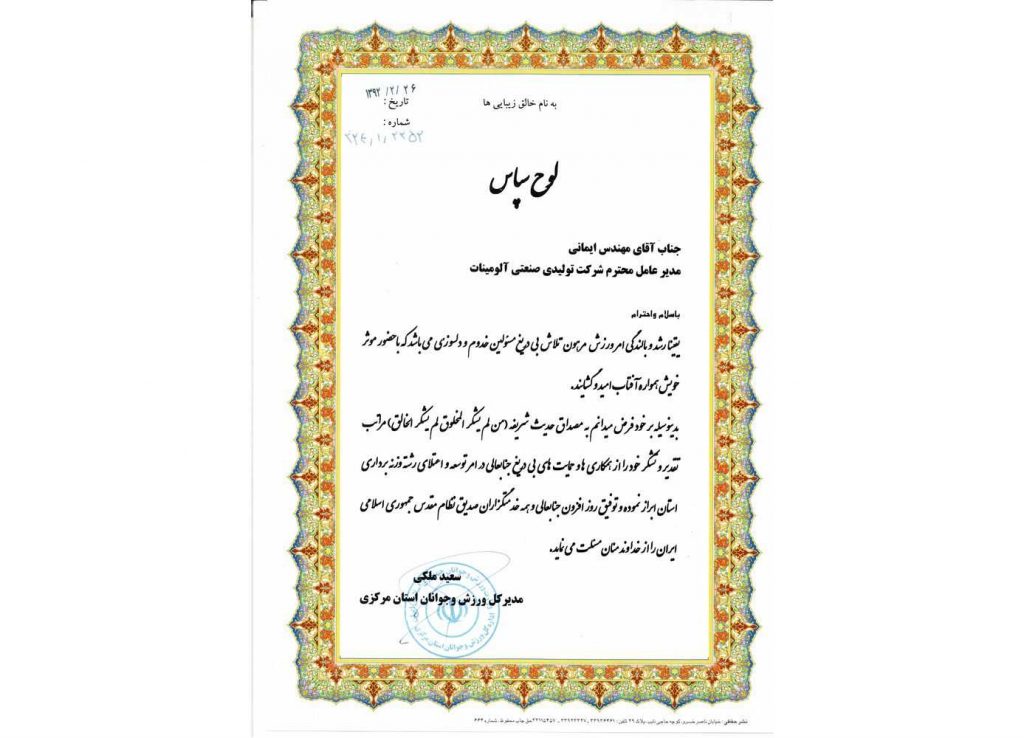 به نام خالق زیبایی ها
۱۳۹۲/۲/۲۶
تاریخ :
شماره :
۲۲۴/۱/۲۲۵۲
لوح سپاس
جناب آقای مهندس ایمانی
مدیر عامل محترم شرکت تولیدی صنعتی آلومینات
باسلام واحترام
یقینا رشد و بالندگی امر ورزش مرهون تلاش بی دریغ مسئولین خدوم و دلسوزی می باشد که با حضور موثر
خویش همواره آفتاب امید و گشایند.
بدینوسیله بر خود فرض میدانم به مصداق حدیث شریفه (من لم یشکر المخلوق لم یشکر الخالق) مراتب
تقدیر و تشکر خود را از همکاری ها و حمایت های بی دریغ جنابعالی در امر توسعه و اعتلای رشته وزنه برداری
استان ابراز نموده و توفیق روز افزون جنابعالی و همه خدمتگزاران صدیق نظام مقدس جمهوری اسلامی
ایران را از خداوند منان مسئلت می نماید.
سعید ملکی
مدیرکل ورزش وجوانان استان مرکزی
نشر حقانی: خیابان ناصر خسرو، کوچه حاجی نایب، پلاک ۲۹ تلفن: